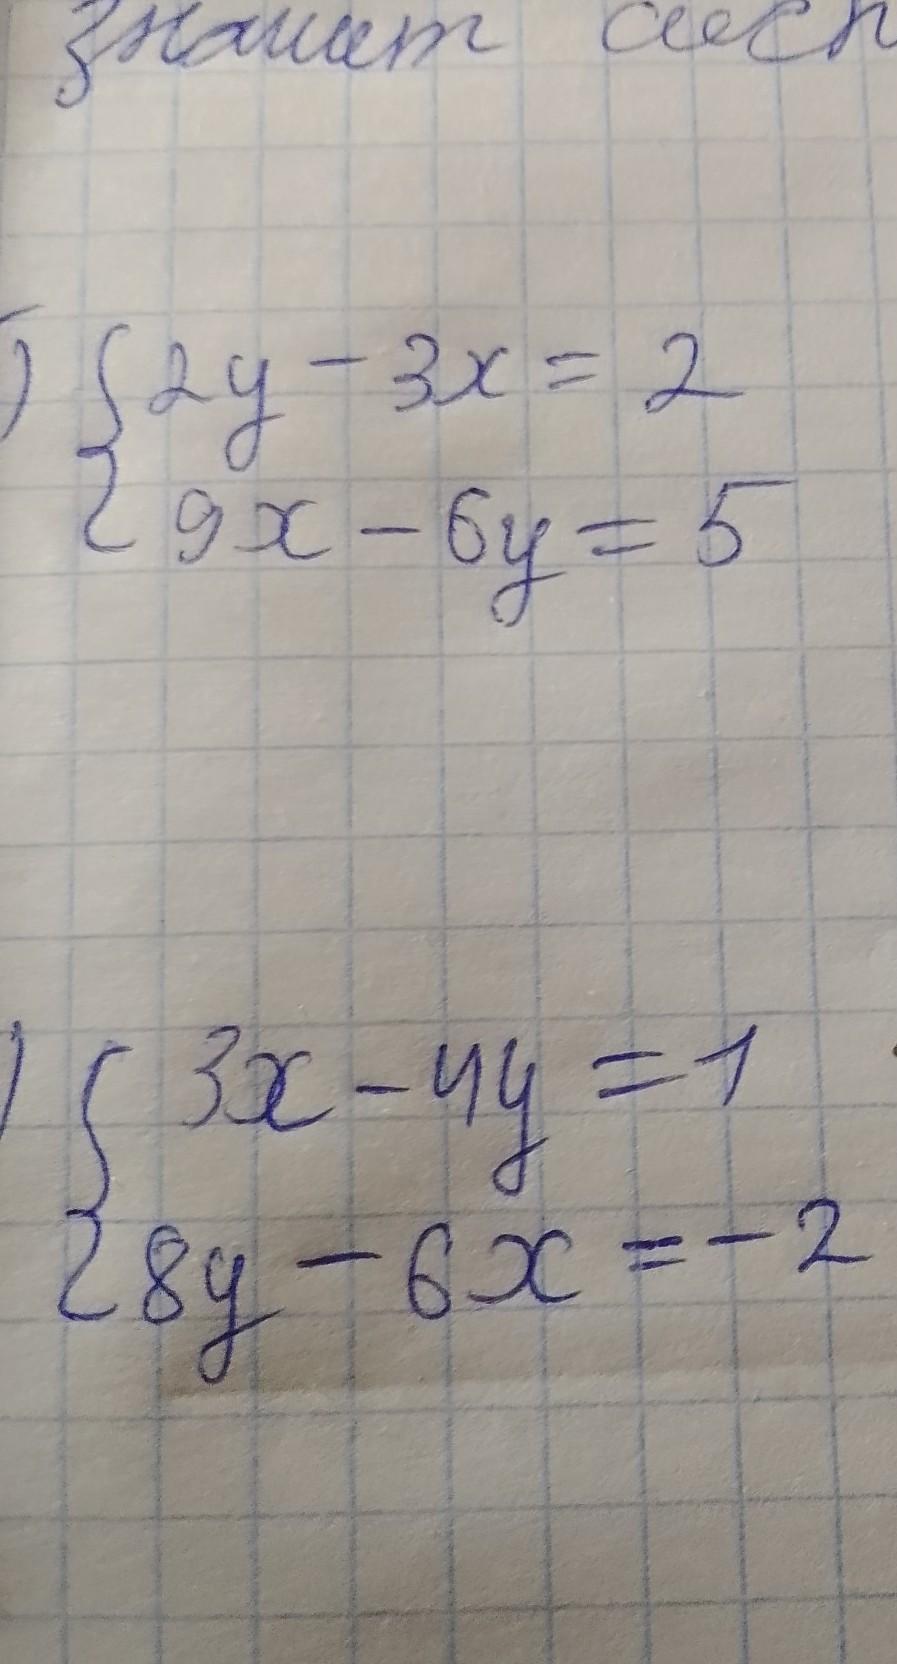 значит
) { 2y - 3x = 2
9x - 6y = 5
) { 3x - 4y = 1
8y - 6x = -2